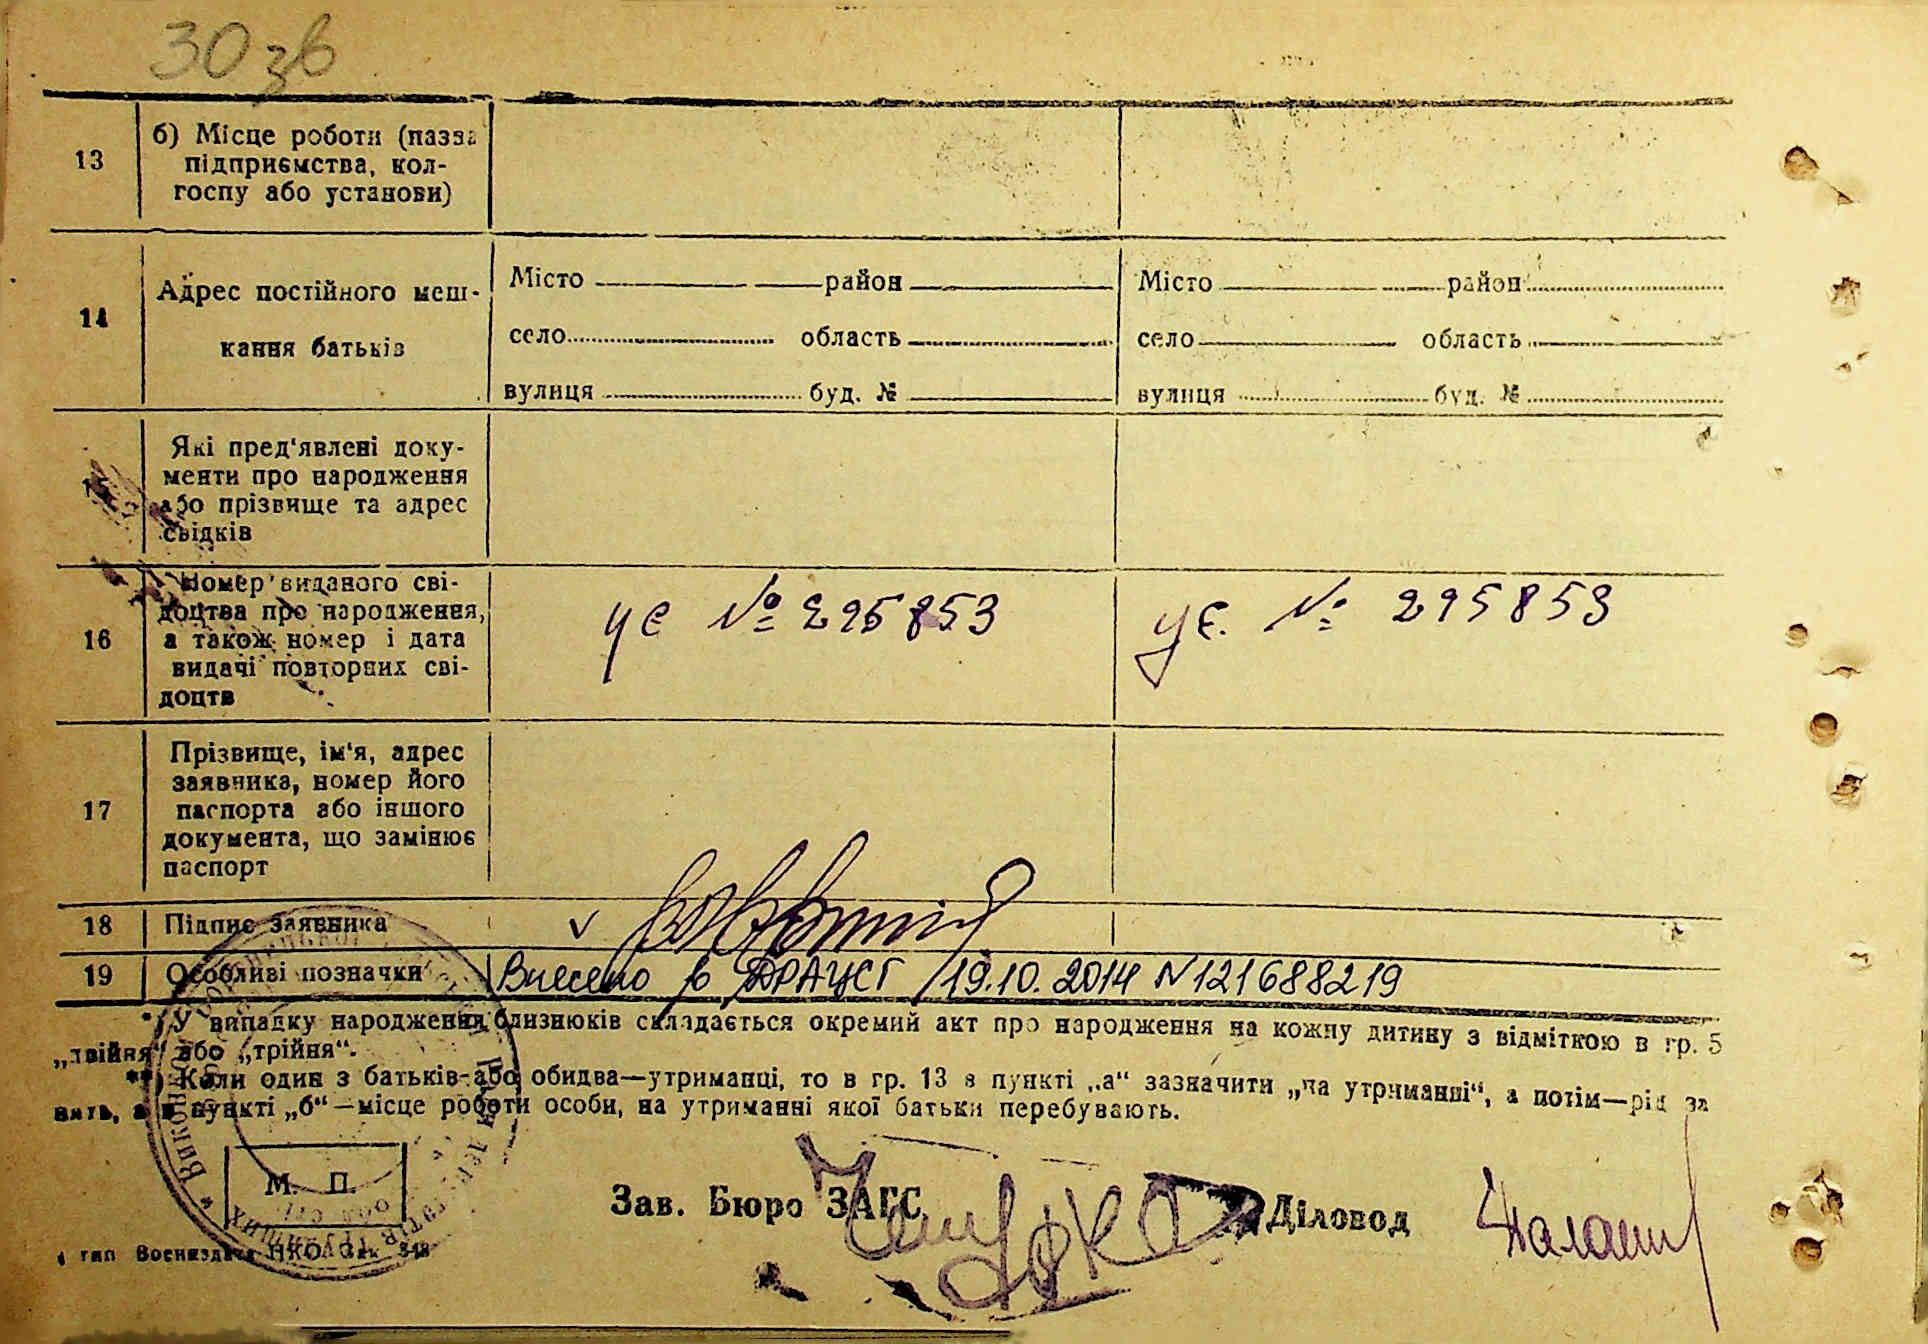 30 зв
13
б) Місце роботи (назва
підприємства, кол-
госпу або установи)
14
Адрес постійного меш-
кання батьків
Місто район
село область
вулиця буд. №
Місто район
село область
вулиця буд. №
Які пред'явлені доку-
менти про народження
або прізвище та адрес
свідків
16
Номер виданого сві-
доцтва про народження,
а також номер і дата
видачі повторних сві-
доцтв
УЄ № 295853
УЄ. № 295853
17
Прізвище, ім'я, адрес
заявника, номер його
паспорта або іншого
документа, що замінює
паспорт
18 Підпис заявника
19 Особливі позначки Внесено в ДРАЦСГ 19.10.2014 N121688219
*) У випадку народження близнюків складається окремий акт про народження на кожну дитину з відміткою в гр. 5
„двійня“ або „трійня“.
**) Коли один з батьків або обидва—утриманці, то в гр. 13 в пункті „а“ зазначити „на утриманні“, а потім—рід за
нять, а в пункті „б“—місце роботи особи, на утриманні якої батьки перебувають.
М. П.
Зав. Бюро ЗАГС
Діловод
тип Воениздата НКО Зак 348